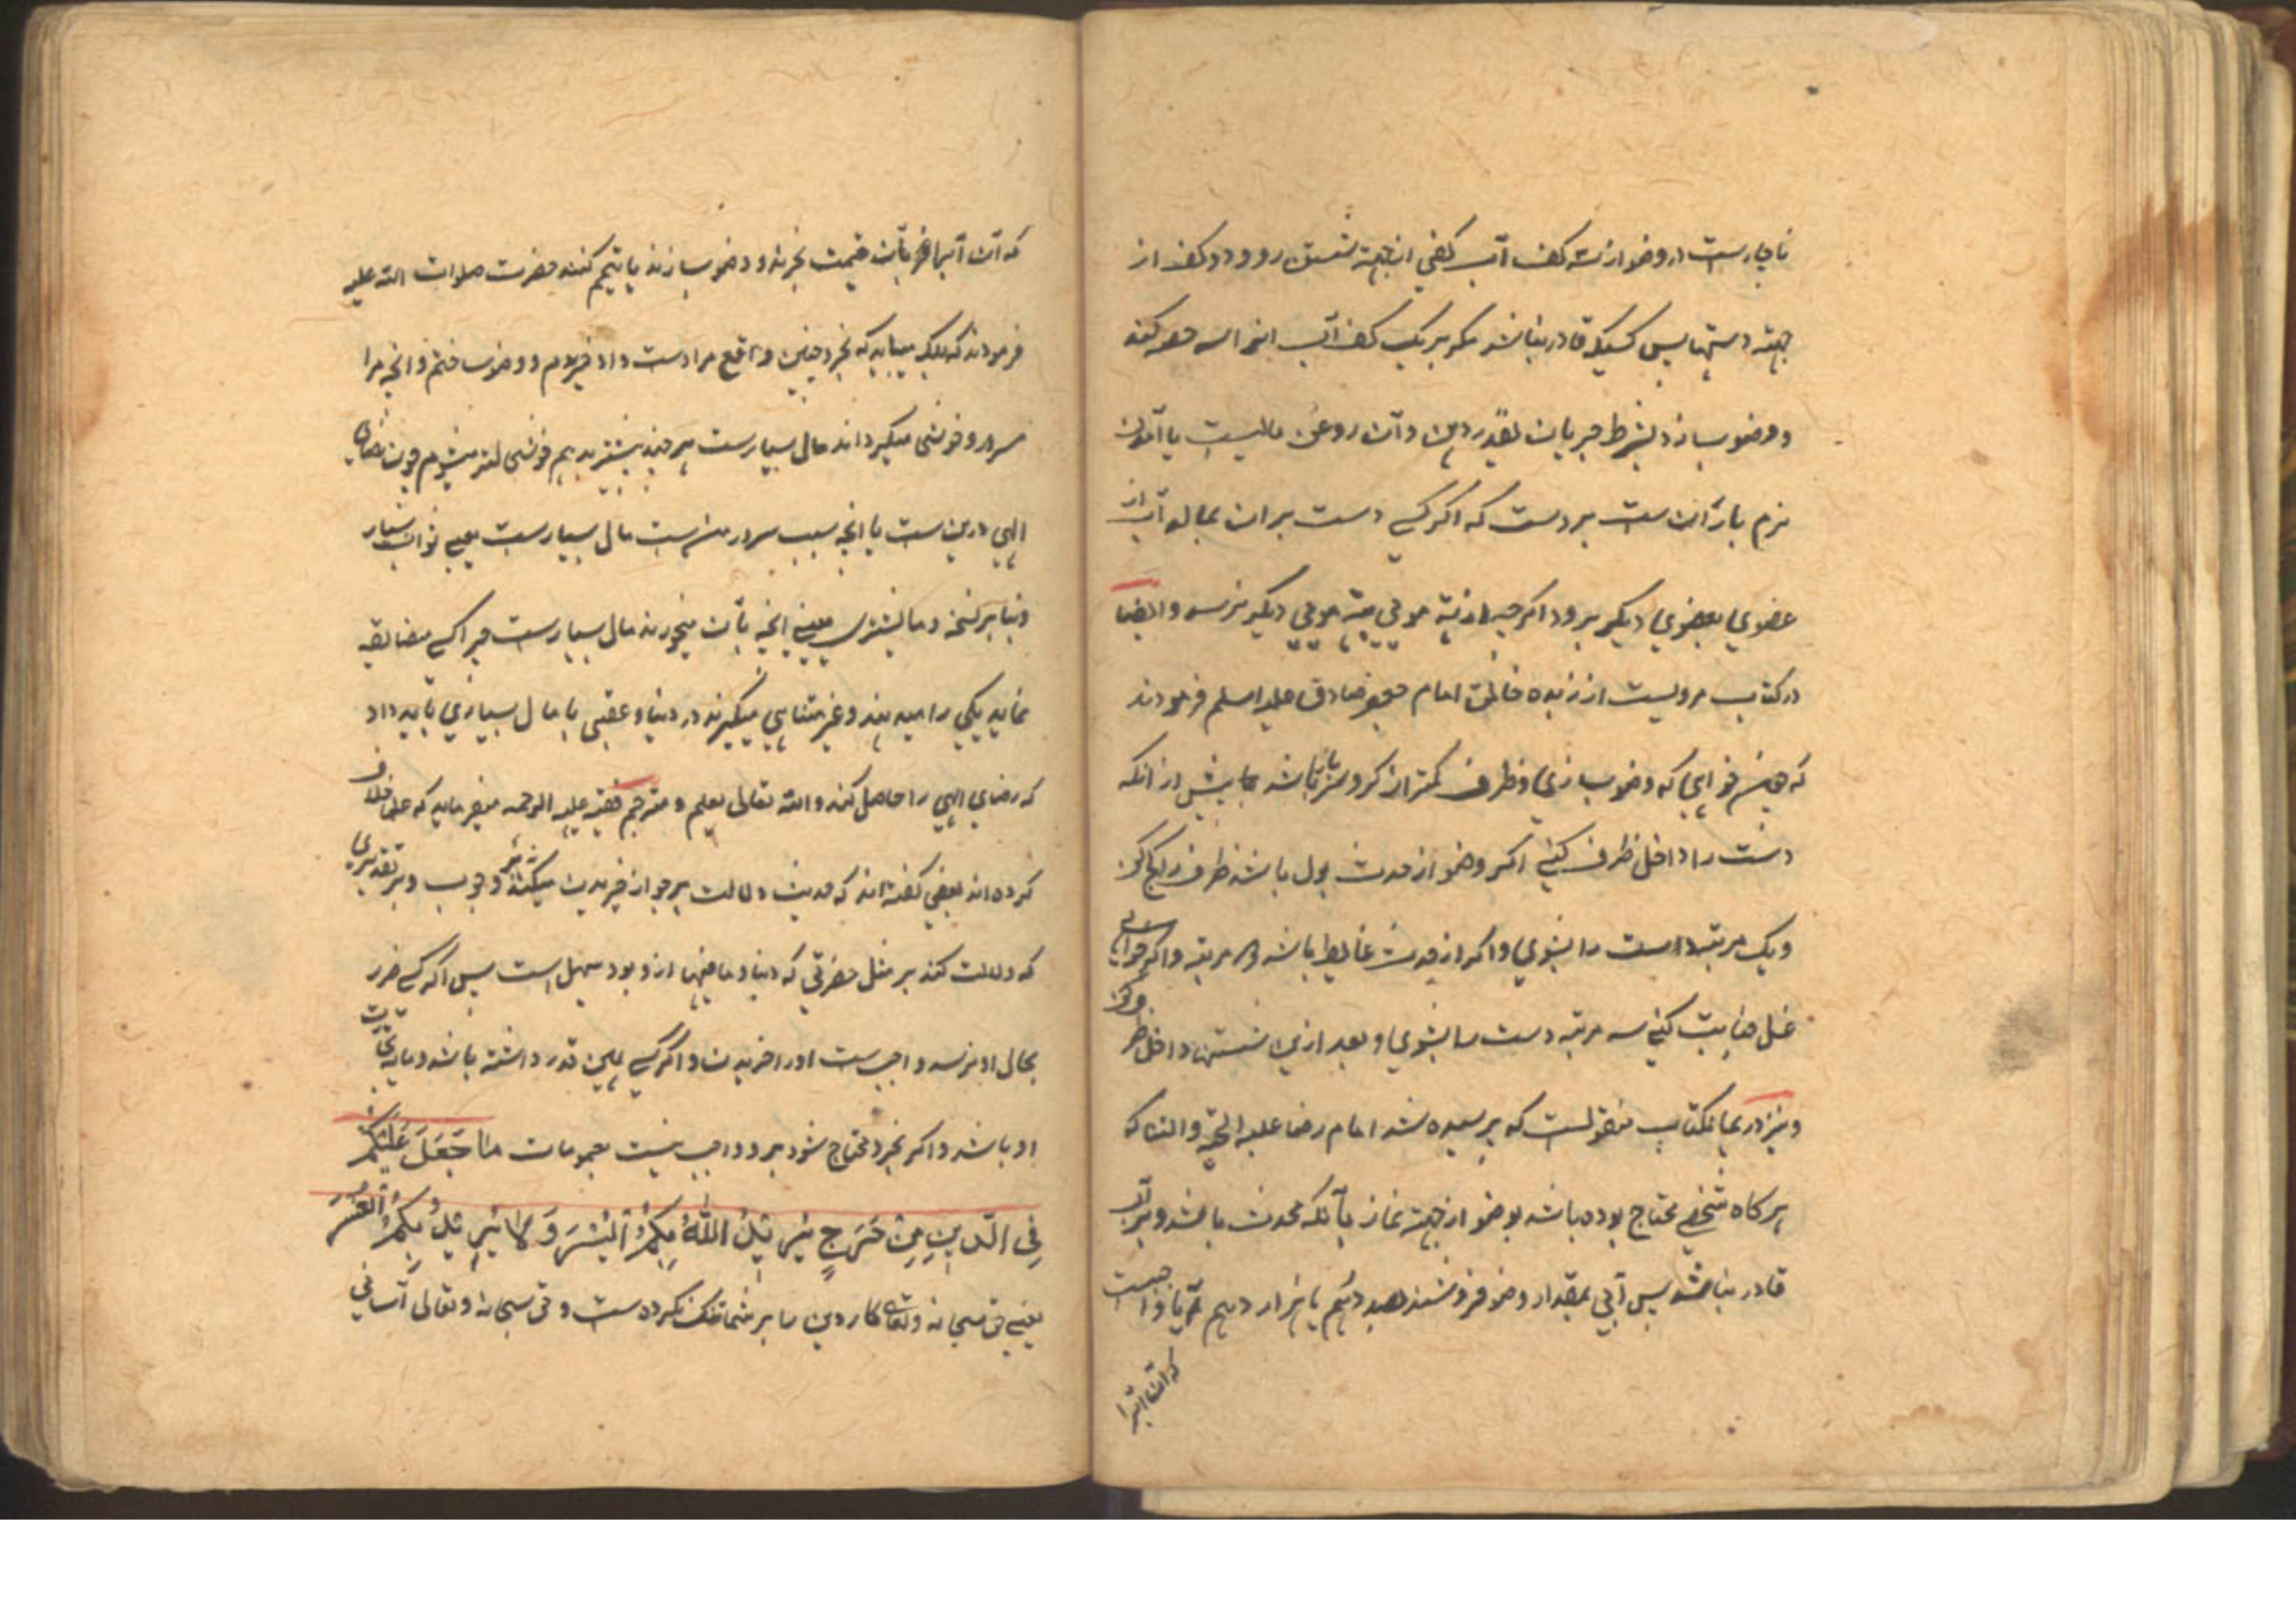 ناچارست در وضو از سه کف آب کفی از جهة شستن رو و دو کف از
جهة دستها پس کسیکه قادر نباشد مکر بر یک کف آب انرا سه حصه کند
و وضو بسازد بشرط جریان بقدر دهن و آن روغن مالیست یا آمدن
نزم باران ست بر دست که اکر کسی دست بران بمالد آب از
عضوي بعضوي دیکر برود اکرچه از بن موئی به بن موئی دیکر برسد وایضا
در کتاب مرویست از زبده خلائق امام جعفر صادق علیه السلم فرمودند
که چون خواهی که وضو بسازی و ظرف کمتر از کر و سر باز باشد پیش از انکه
دست را داخل ظرف کنی اکر وضو از حدث بول باشد ظرف را کج کن
و یک مرتبه دست را بشوي و اکر از حدث غایط باشد دو مرتبه و اکر خواهی
غسل جنابت کنی سه مرتبه دست را بشوي و بعد ازین شستن داخل ظرف کن
و نیز در همانکتاب منقولست که پرسیده شد امام رضا علیه التحیة والثنا که
هرکاه شخصی محتاج بوده باشد بوضو از جهة نماز بآنکه محدث باشد و بر آب
قادر نباشد پس آبی بمقدار وضو فروشند بصد درهم یا هزار درهم آیا واجبست
که آن آبرا
که آن آبرا بآن قیمت بخرند و وضو بسازند یا تیمم کنند حضرت صلوات الله علیه
فرمودند که بلکه میباید که بخرد چنین واقع مرا دست داد خریدم و وضو ساختم و انچه مرا
مسرور و خوشی میکرداند مال بسیارست هرچند بیشتر بدهم خوشی لتر میشوم چون رضای
الهی درین ست یا انچه سبب سرور منست مال بسیارست یعنی ثواب بسیار
و بنا بر نسخه و ما یشتری یعنی انچه بآن میخرند مال بسیارست چرا کسی مضایقه
نماید یکی را میدهند و غیر متناهی میکیرند در دنیا و عقبی با مال بسیاری باید داد
که رضای الهی را حاصل کند والله تعالی یعلم و مترجم فقیه علیه الرحمه میفرماید که علما خلاف
کرده اند بعضی کفته اند که حدیث دلالت بر جواز خریدن میکند نه بر وجوب و بر تقدیری
که دلالت کند بر مثل حضرتی که دنیا و مافیها ازو بود سهل است پس اکر کسی ضرر
بحال او نرسد واجب ست او را خریدن و اکر کسی همین قدر داشته باشد و مایه تجارت
او باشد و اکر بخرد محتاج شود برو واجب نیست بعمومات مَا جَعَلَ عَلَیْکُمْ
فِی الدِّینِ مِنْ حَرَجٍ یُرِیدُ اللهُ بِکُمُ الْیُسْرَ وَ لَا یُرِیدُ بِکُمُ الْعُسْرَ
یعنی حق سبحانه و تعالی کار دین را بر شما تنک نکرده ست و حق سبحانه و تعالی آسانی